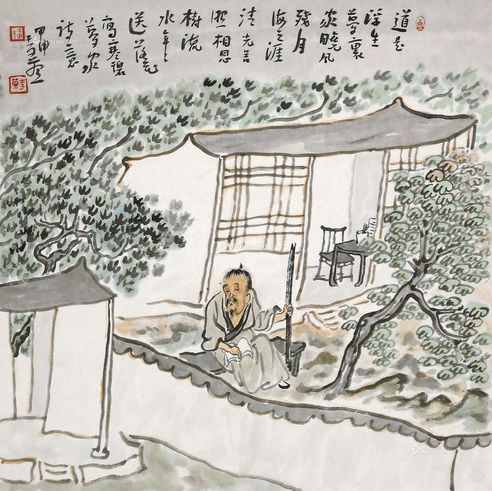 道是
浮生
夢裏
家曉風
殘月
海之涯
清光善
照相思
樹流
水年年
送落花
寫寒碧
詩意
甲申